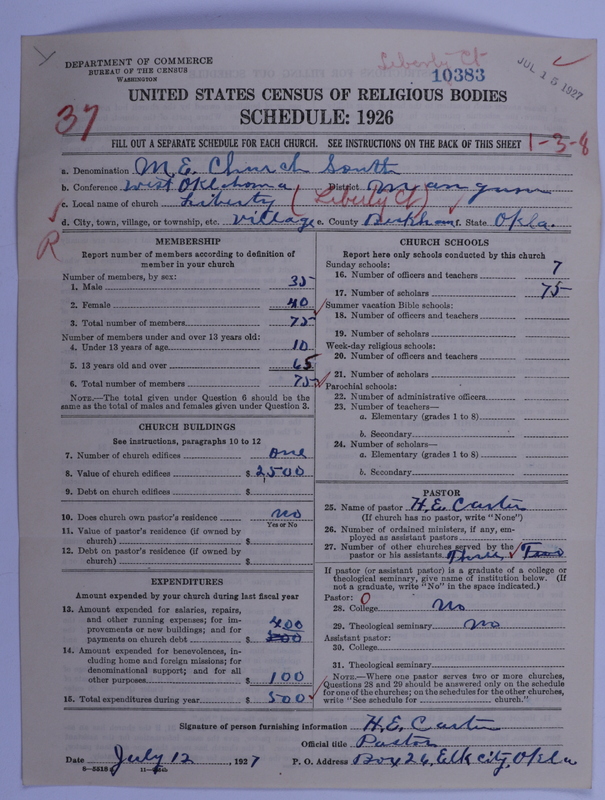 DEPARTMENT OF COMMERCE
BUREAU OF THE CENSUS
WASHINGTON
Liberty Ct
10383
JUL 15 1927
UNITED STATES CENSUS OF RELIGIOUS BODIES
SCHEDULE: 1926
37
FILL OUT A SEPARATE SCHEDULE FOR EACH CHURCH. SEE INSTRUCTIONS ON THE BACK OF THIS SHEET
1-3-8
a. Denomination M.E. Church South
b. Conference West Oklahoma District Mangum
c. Local name of church Liberty (Liberty Ct)
d. City, town, village, or township, etc. Village e. County Beckham f. State Okla.
R
MEMBERSHIP
Report number of members according to definition of
member in your church
Number of members, by sex:
1. Male 35
2. Female 40
3. Total number of members 75
Number of members under and over 13 years old:
4. Under 13 years of age 10
5. 13 years old and over 65
6. Total number of members 75
NOTE.—The total given under Question 6 should be the
same as the total of males and females given under Question 3.
CHURCH BUILDINGS
See instructions, paragraphs 10 to 12
7. Number of church edifices one
8. Value of church edifices $ 2,500
9. Debt on church edifices $
10. Does church own pastor's residence no
Yes or No
11. Value of pastor's residence (if owned by
church) $
12. Debt on pastor's residence (if owned by
church) $
EXPENDITURES
Amount expended by your church during last fiscal year
13. Amount expended for salaries, repairs,
and other running expenses; for im-
provements or new buildings; and for
payments on church debt $ 400
14. Amount expended for benevolences, in-
cluding home and foreign missions; for
denominational support; and for all
other purposes $ 100
15. Total expenditures during year $ 500
CHURCH SCHOOLS
Report here only schools conducted by this church
Sunday schools:
16. Number of officers and teachers 7
17. Number of scholars 75
Summer vacation Bible schools:
18. Number of officers and teachers
19. Number of scholars
Week-day religious schools:
20. Number of officers and teachers
21. Number of scholars
Parochial schools:
22. Number of administrative officers
23. Number of teachers—
a. Elementary (grades 1 to 8)
b. Secondary
24. Number of scholars—
a. Elementary (grades 1 to 8)
b. Secondary
PASTOR
25. Name of pastor H. E. Carter
(If church has no pastor, write "None")
26. Number of ordained ministers, if any, em-
ployed as assistant pastors
27. Number of other churches served by the
pastor or his assistants Three Two
If pastor (or assistant pastor) is a graduate of a college or
theological seminary, give name of institution below. (If
not a graduate, write "No" in the space indicated.)
Pastor: 0
28. College No
29. Theological seminary No
Assistant pastor:
30. College
31. Theological seminary
NOTE.—Where one pastor serves two or more churches,
Questions 28 and 29 should be answered only on the schedule
for one of the churches; on the schedules for the other churches,
write "See schedule for church."
Signature of person furnishing information H. E. Carter
Official title Pastor
Date July 12, 1927 P. O. Address Box 26, Elk City, Okla